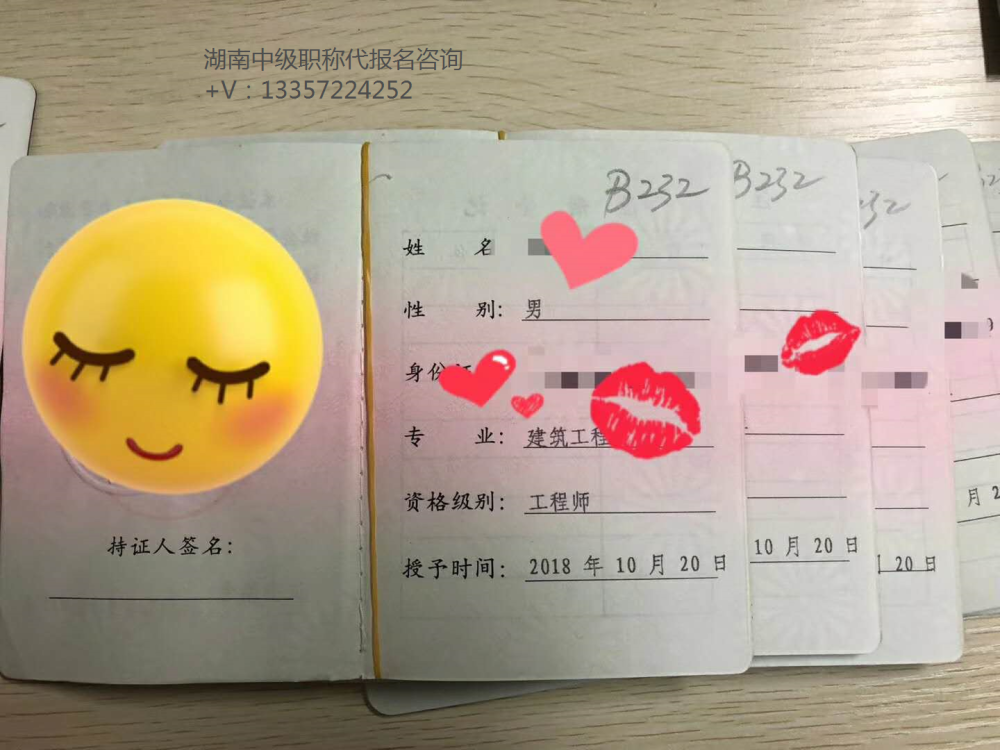 湖南中级职称代报名咨询
+V：13357224252
B232
B232
姓 名
性 别： 男
身份
专 业： 建筑工程
资格级别： 工程师
授予时间： 2018 年 10 月 20 日
持证人签名：
10 月 20 日
20 日
月 2